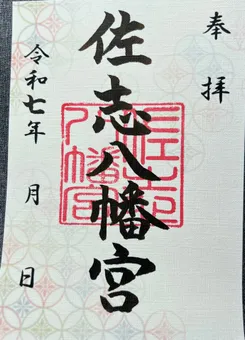 奉拝
佐志八幡宮
令和七年 月 日
佐志八幡宮